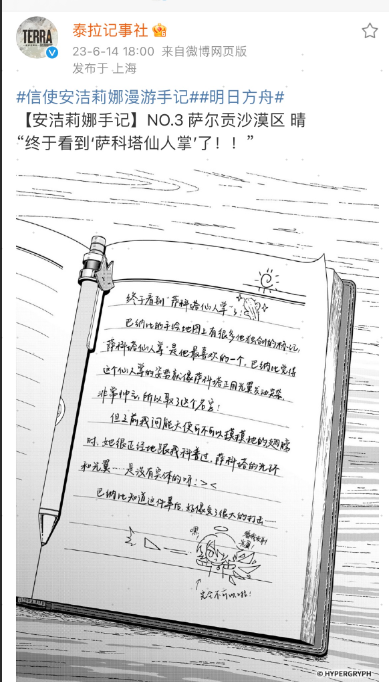 TERRA
泰拉记事社
23-6-14 18:00 来自微博网页版
发布于 上海
#信使安洁莉娜漫游手记##明日方舟#
【安洁莉娜手记】NO.3 萨尔贡沙漠区 晴
“终于看到‘萨科塔仙人掌’了！！”
终于看到“萨科塔仙人掌”
巴纳比的手绘地图上有很多他独创的标记，
“萨科塔仙人掌”是他最喜欢的一个，巴纳比觉得
这个仙人掌的姿势就像萨科塔正用光翼
非常神气，所以取了这个名字！
但之前我问能天使可不可以摸摸她的翅膀
时，她很正经地跟我科普过，萨科塔的光环
和光翼……是没有实体的呀！><
巴纳比知道这件事后，好像受了很大的打击……
黑
完全不可以啦！
© HYPERGRYPH